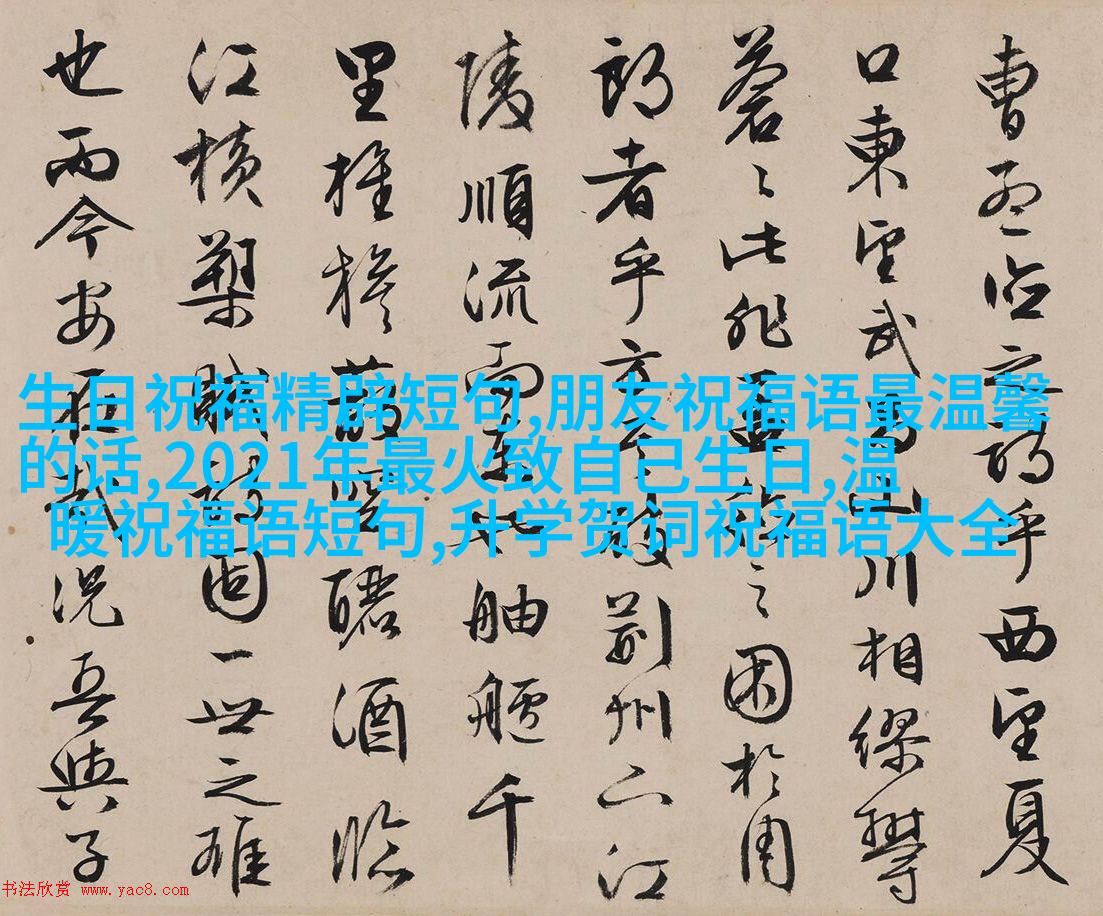 曹孟德之詩乎西望夏
口東望武昌山川相繆鬱
蒼〻此非孟德之困於周
郎者乎方其破荊州下江
陵順流而東也舳艫千
里旌旗蔽空釃酒臨
江橫槊賦詩固一世之雄
也而今安在哉況吾與子
生日祝福精辟短句,朋友祝福语最温馨
的话,2021年最火致自己生日,温
暖祝福语短句,升学贺词祝福语大全
书法欣赏 www.yac8.com